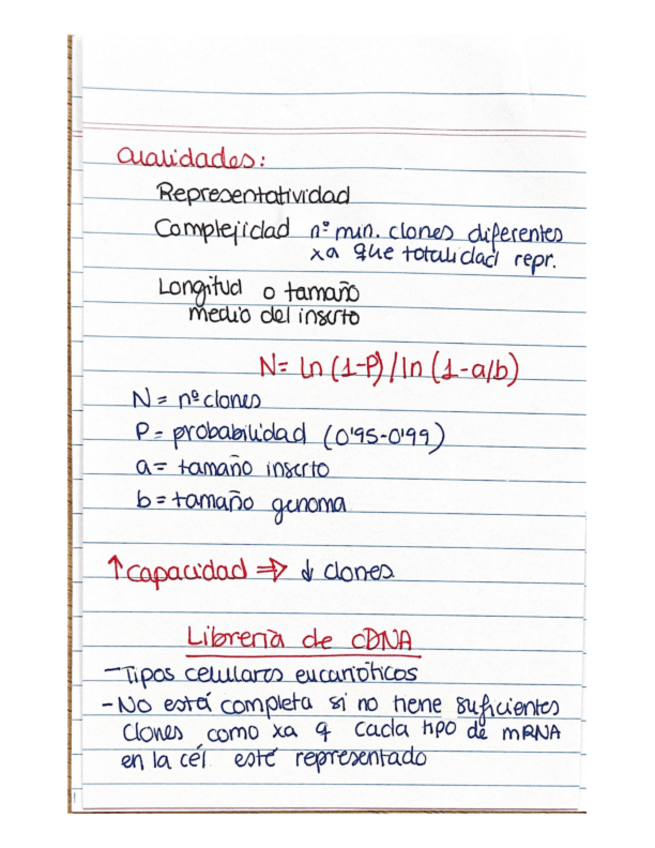 Cualidades:
Representatividad
Complejidad nº min. clones diferentes
xa que totalidad repr.
Longitud o tamaño
medio del inserto
N= ln (1-P)/ln (1-a/b)
N = nº clones
P = probabilidad (0'95-0'99)
a = tamaño inserto
b = tamaño genoma
↑ capacidad ⇒ ↓ clones
Librería de cDNA
-Tipos celulares eucarióticos
- No está completa si no tiene suficientes
clones como xa q cada tipo de mRNA
en la cél esté representado